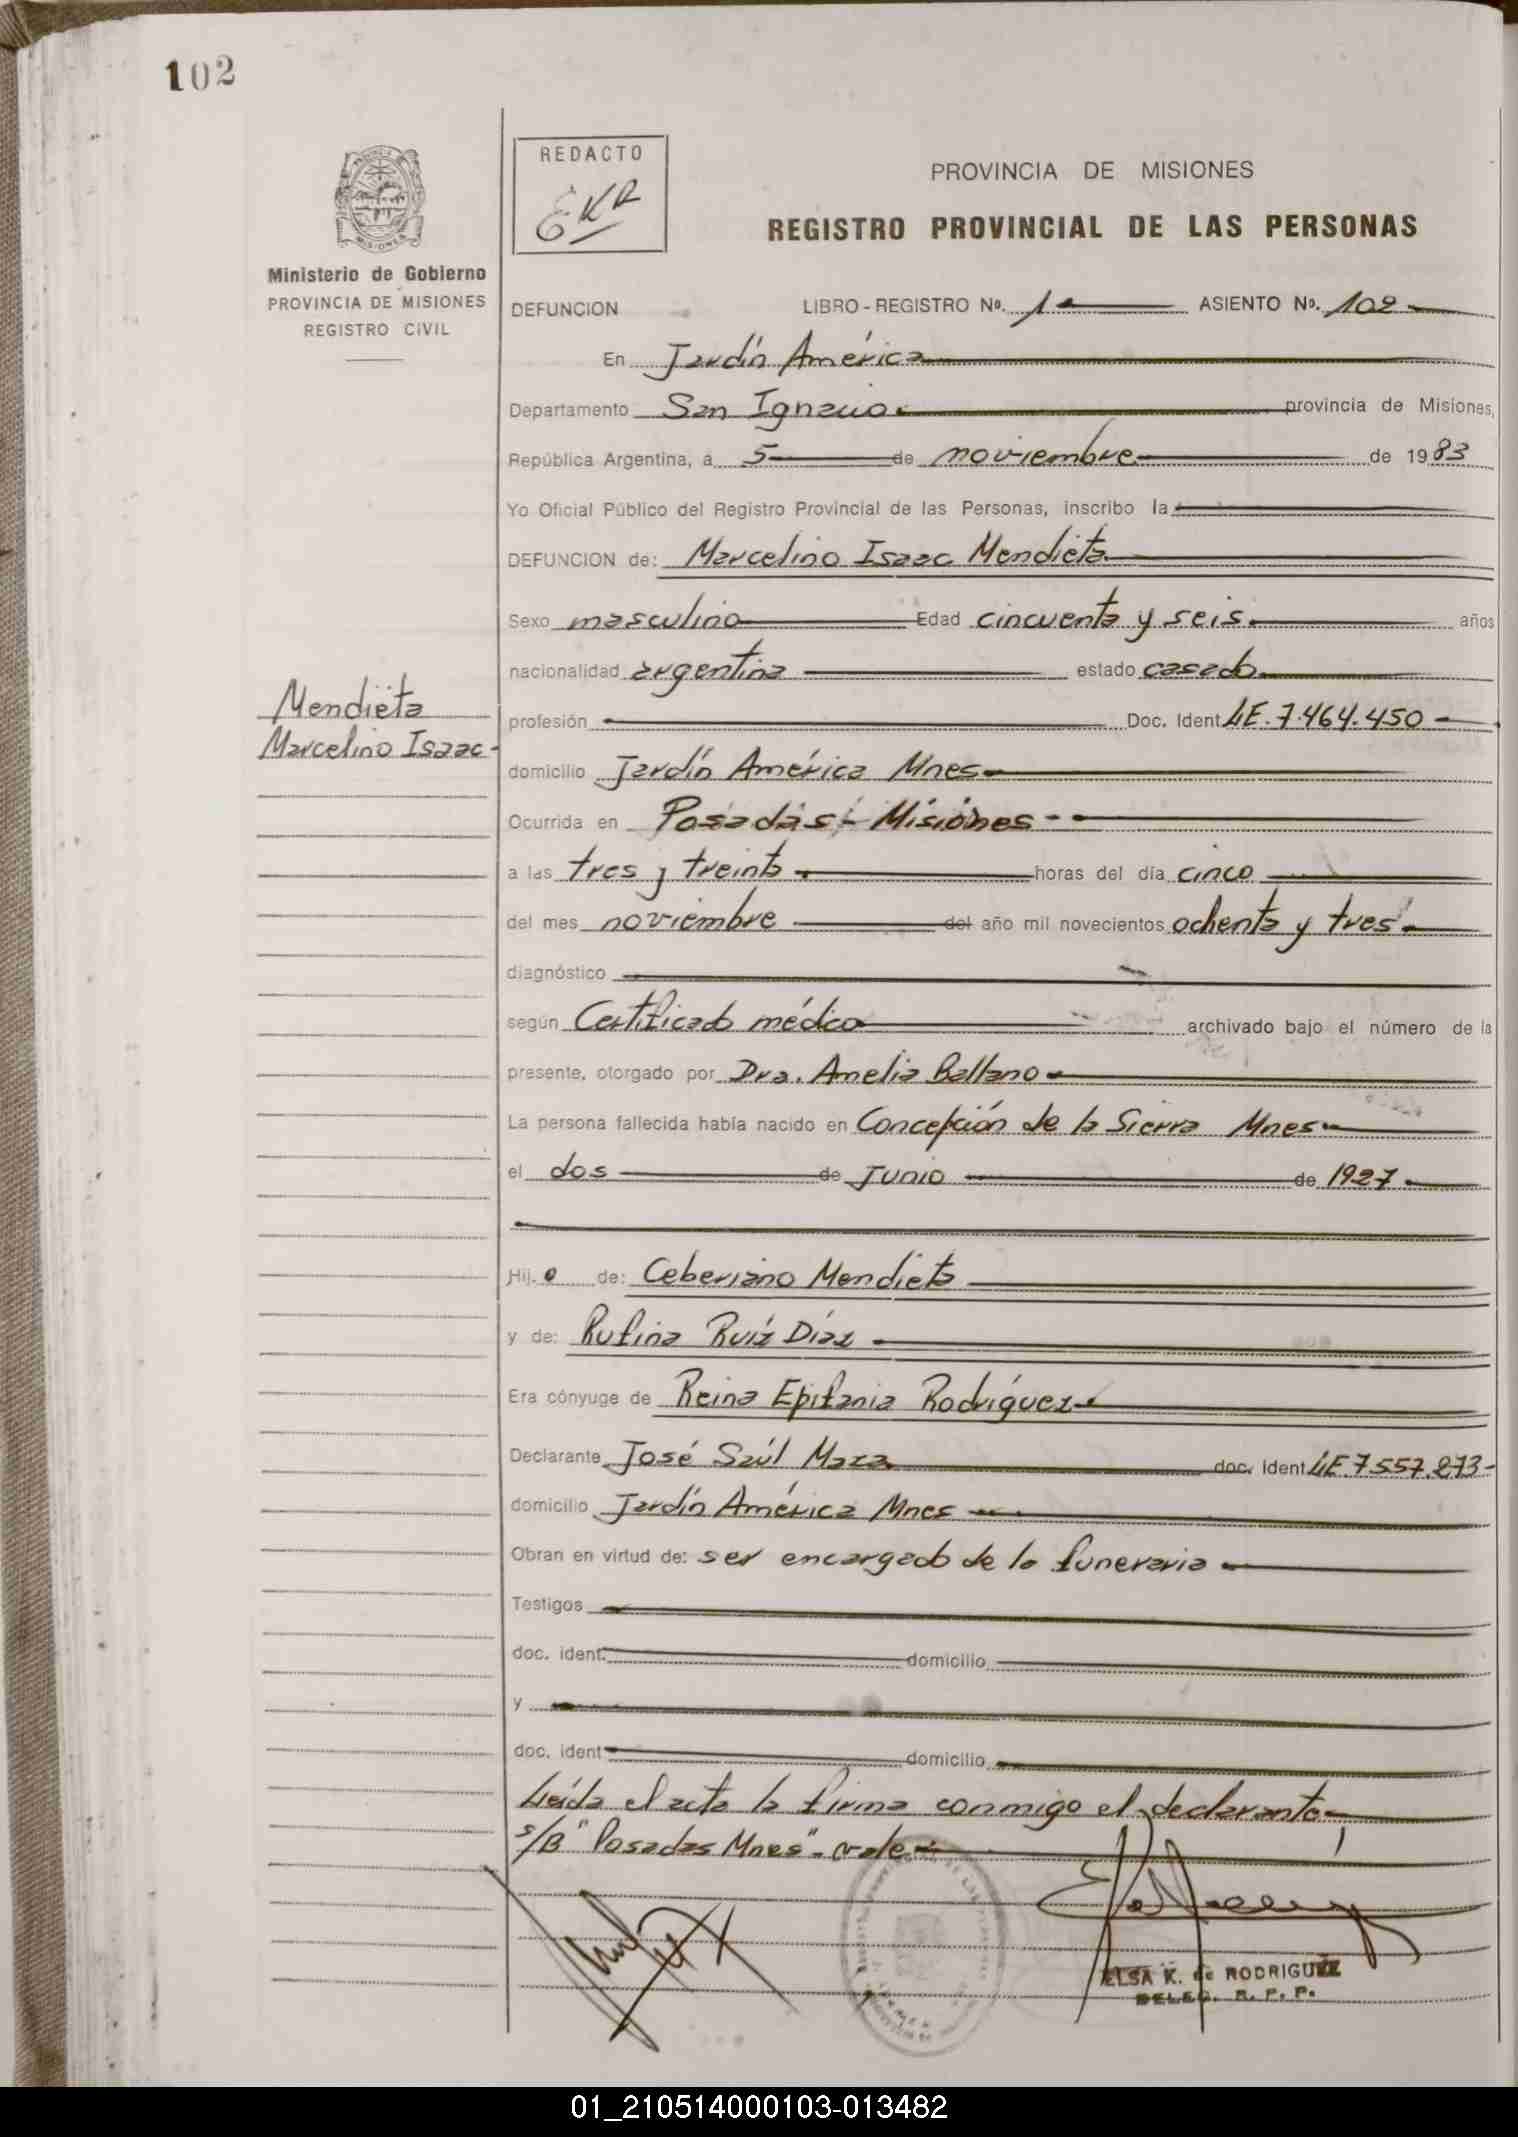 102
REDACTO
EKR
PROVINCIA DE MISIONES
REGISTRO PROVINCIAL DE LAS PERSONAS
Ministerio de Gobierno
PROVINCIA DE MISIONES
REGISTRO CIVIL
DEFUNCION LIBRO-REGISTRO Nº. 1 ASIENTO Nº. 102
En Jardín América
Departamento San Ignacio provincia de Misiones,
República Argentina, a 5 de noviembre de 1983
Yo Oficial Público del Registro Provincial de las Personas, inscribo la
DEFUNCION de: Marcelino Isaac Mendieta
Sexo masculino Edad cincuenta y seis años
nacionalidad argentina estado casado
Mendieta
Marcelino Isaac-
profesión Doc. Ident LE. 7.464.450
domicilio Jardín América Mnes
Ocurrida en Posadas - Misiones
a las tres y treinta horas del día cinco
del mes noviembre del año mil novecientos ochenta y tres
diagnóstico
según Certificado médico archivado bajo el número de la
presente, otorgado por Dra. Amelia Ballano
La persona fallecida había nacido en Concepción de la Sierra Mnes
el dos de Junio de 1927
Hij. o de: Ceberiano Mendieta
y de: Rufina Ruíz Díaz
Era cónyuge de Reina Epifania Rodríguez
Declarante José Saúl Maza doc. Ident LE. 7.557.273-
domicilio Jardín América Mnes
Obran en virtud de: ser encargado de la funeraria
Testigos
doc. ident. domicilio
y
doc. ident domicilio
Leída el acta la firma conmigo el declarante
s/B "Posadas Mnes" - vale
ELSA K. de RODRIGUEZ
DELEG. R. P. P.
01_210514000103-013482